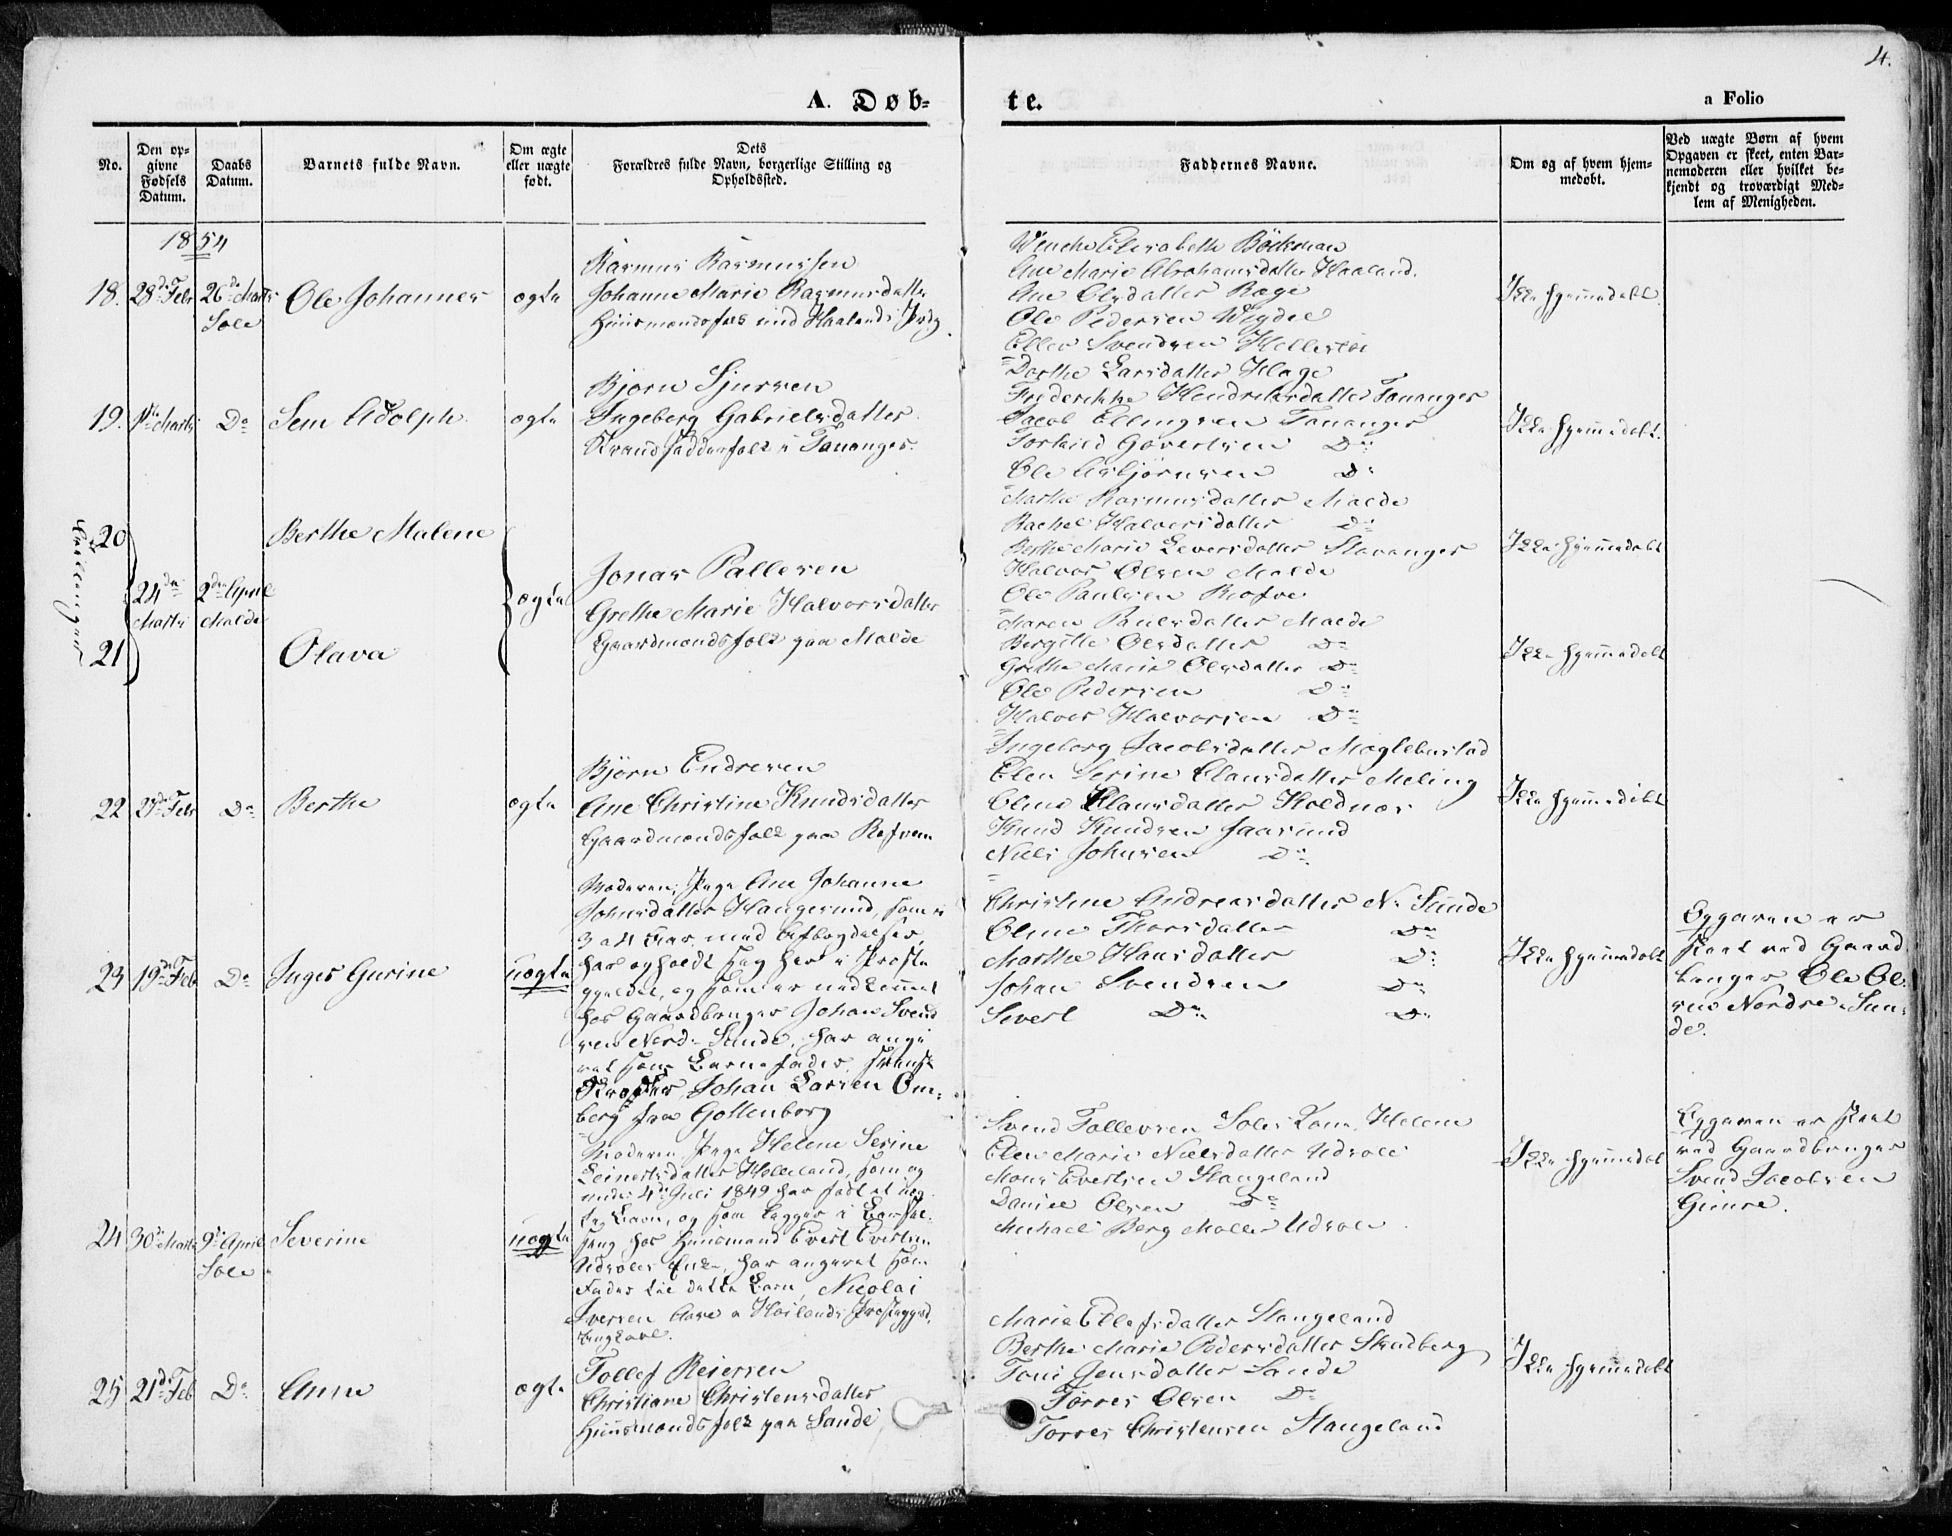 4.
A. Døb-
te.
a Folio
No.
Den op-
givne
Fødsels
Datum.
Daabs
Datum.
Barnets fulde Navn.
Om ægte
eller uægte
født.
Dets
Forældres fulde Navn, borgerlige Stilling og
Opholdssted.
Faddernes Navne.
Om og af hvem hjem-
medøbt.
Ved uægte Børn af hvem
Opgaven er skeet, enten Bar-
nemoderen eller hvilket be-
kjendt og troværdigt Med-
lem af Menigheden.
1854
18. 28de Febr 26de Marts
Sole
Ole Johannes
ægte
Rasmus Rasmussen
Johanne Marie Rasmusdatter
Huusmandsfolk
Wenche Elisabeth Böckman
Ane Marie Abrahamsdatter Haaland.
Ane Olsdatter Rege
Ole Pedersen Wigdel
Eller Svendsen Hellestø
Ikke hjemmedøbt.
19. 1ste Marts Do
Sem Adolph
ægte
Bjørn Sjursen
Ingeberg Gabrielsdatter
Strandsidderfolk i Tananger.
Dorthe Larsdatter Hage
Frederikke Hendriksdatter Tananger
Jacob Ellingsen Tananger
Torkild Govertsen Do
Ole Asbjørnsen Do
Ikke hjemmedøbt.
Tvillinger
20
Berthe Malene
24de
Marts
2den April
Malde
21
Olava
ægte
Jonas Pallesen
Grethe Marie Halvorsdatter
Gaardmandsfolk paa Malde
Marthe Rasmusdatter Malde
Rachel Halvorsdatter Do
Berthe Marie Seversdatter Stavanger
Halvor Olsen Malde
Ole Paulsen Refve
Ikke hjemmedøbt
Maren Paulsdatter Malde
Bergitte Olsdatter Do
Grethe Marie Olsdatter Do
Ole Pedersen Do
Halvor Halvorsen Do
Ikke hjemmedøbt
22 27de Febr Do
Berthe
ægte
Bjørn Endresen
Ane Christine Knudsdatter
Gaardmandsfolk paa Refven
Ingeborg Jacobsdatter Meglebustad
Elen Serine Clausdatter Meling
Oline Klausdatter Holdnæs
Knud Knudsen Jaasund
Niels Johnsen Do
Ikke hjemmedøbt
23 19de Feb Do
Inger Gurine
uægte
Moderen, Pige Ane Johanne
Johnsdatter Haugesund, som i
3 a 4 Aar med Afbrydelser,
har opholdt sig her i Præste-
gjeldet, og som er
hos Gaardbruger Johan Svend-
sen Nord-Sunde, har angi-
vet som Barnefader, svensk
Johan Larsen Om-
berg fra Gottenborg
Christine Andreasdatter N. Sunde
Oline Thorsdatter Do
Marthe Hansdatter Do
Johan Svendsen Do
Sivert Do Do
Ikke hjemmedøbt
Opgaven er
skeet ved Gaard-
bruger Ole Ol-
sen Nordre-Sun-
de.
24 30te Marts 9de April
Sole
Severine
uægte
Moderen Pige Helene Serine
Leinertsdatter Helleland, som og-
4de Juli 1849 har født et uæg-
te Barn, og som ligger i Barsel-
seng hos Huusmand Evert Evertsen
Udsoles Enke, har angivet som
Fader til dette Barn, Nicolai
Iversen Aase i Høilands Præstegjeld,
Ungkarl.
Svend Tollevsen Soles Kone, Helene
Elen Marie Nielsdatter Udsole
Mons Evertsen Stangeland
Daniel Olsen Do
Michael Berg Møller Udsole
Ikke hjemmedøbt
Opgaven er skeet
ved Gaardbruger
Svend Jacobsen
Gimre.
25 21de Feb Do
Anne
ægte
Tollef Reiersen
Christiane Christensdatter
Huusmandsfolk paa Sande
Marie Ellefsdatter Stangeland
Berthe Marie Pedersdatter Skadberg
Toni Jensdatter Sande
Tørres Olsen Do
Torres Christensen Stangeland
Ikke hjemmedøbt